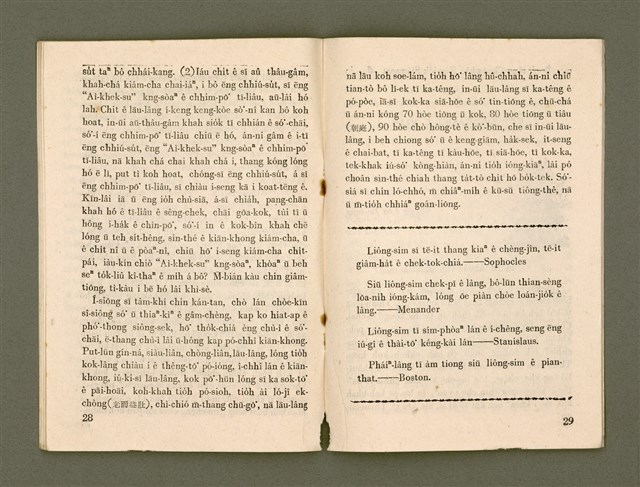 su̍t taⁿ bô chhái-kang. (2) Iáu chi̍t ê sī aū thâu-gâm,
khah-chá kiám-cha chai-iáⁿ, i bô ēng chhiú-su̍t, sī ēng
“Ai-khek-su” kng-sòaⁿ ê chhim-pō͘ tī-liâu, aū-lâi hó
lah. Chit ê lāu-lâng i-keng keng-kòe sò͘-nî kan bô koh
hoat, in-ūi aū-thâu-gâm khah sio̍k tī chhián ê só͘-chāi,
só͘-í ēng chhim-pō͘ tī-liâu chiū ē hó, án-ni gâm ê i-tī
ēng chhiú-su̍t, ēng “Ai-khek-su” kng-sòaⁿ ê chhim-pō͘
tī-liâu, nā khah chá chai khah chá i, thang kóng lóng
hó ê lī, put tī koh hoat, chóng-sī ēng chhiú-su̍t, á sī
ēng chhim-pō͘ tī-liâu, sī chiàu i-seng kā i koat-tēng ê.
Kīn-lâi iā ū ēng io̍h chù-siā, á-sī chia̍h, pang-chān
khah hó ê tī-liâu ê sêng-chek, chāi gōa-kok, tùi tī ū
hông i-ha̍k ê chìn-pō͘, só͘-í in ê kok-bîn khah chē
lóng ū teh si̍t-hêng, sin-thé ê kiān-khong kiám-cha, ū
ê chi̍t nî ū ê pòaⁿ-nî, chiū hō͘ i-seng kiám-cha chi̍t-
pái, iàu-kín chiò “Ai-khek-su” kng-sòaⁿ, khòaⁿ ū beh
seⁿ to̍k-liû kî-thaⁿ ê mih á bô? M̄-biàn kàu chin giâm-
tiōng, tī-kàu i bē hó lâi khì-sè.
Í-siōng sī tâm-khí chin kán-tan, chò lán chòe-kīn
sî-siông só͘ ū thiaⁿ-kìⁿ ê gâm-chèng, kap ko hiat-ap ê
phó͘-thong siông-sek, hō͘ tho̍k-chiá èng chù-ì ê só͘-
chāi, ē-thang chù-ì lâi ū-hông kap pó-chhî kiān-khong.
Put-lūn gín-ná, siàu-liân, chòng-liân, lāu-lâng, lóng tio̍h
kok-lâng chiàu i ê thêng-tō͘ pó-ióng, í-chhî lán ê kiān-
khong, iû-kî-sī lāu-lâng, kok pō͘-hūn lóng sī ka sok-tō͘
ê pāi-hoāi, koh-khah tio̍h pó-sioh, tio̍h ài ló-jî ek-
chòng(老而益壯), chí-chió m̄-thang chū-gō͘, nā lāu-lâng
28
nā lāu koh soe-lám, tio̍h hō͘ lâng hû-chhah, án-ni chit
tian-tò bô lī-ek tī ka-têng, in-ūi lāu-lâng sī ka-têng ê
pó-pòe, iā-sī kok-ka siā-hōe ê só͘ tin-tiōng ê, chū-chá
ū án-ni kóng 70 hòe tiōng ū kok, 80 hòe tiōng ū tiâu
90 hòe chò hòng-tè ê kò͘-būn, che sī in-ūi lāu-
lâng, i beh chiong só͘ ū ê keng-giām, ha̍k-sek, it-seng
ê chai-bat, tī ka-têng tī kàu-hōe, tī siā-hōe, tī kok-ka,
tek-kok ka iû-só͘ kòng-hiàn, án-ni tio̍h ióng-kiāⁿ, lâi pó
choân sin-thé chiah thang ta̍t-tò chit hō bo̍k-tek. Só͘-
siá sī chin ló-chhó, m̄ chiāⁿ-mih ê kū-sū tiōng-thê, nā
ū m̄-tio̍h chhiáⁿ goán-liōng.
Liông-sim sī tē-it thang kiaⁿ ê chèng-jîn, tē-it
giâm-ha̍t ê chek-tok-chiá.——Sophocles
Siū liông-sim chek-pī ê lâng, bô-lūn thian-sèng
lōa-nih ióng-kám, lóng òe piàn chòe loán-jio̍k ê
lâng.——Menander
Liông-sim tī sím-phòaⁿ lán ê í-chêng, seng ēng
iú-gī ê thài-tō͘ kéng-kài lán——Stanislaus.
Pháiⁿ-lâng tī àm tiong siū liông-sim ê pian-
that.——Boston.
29